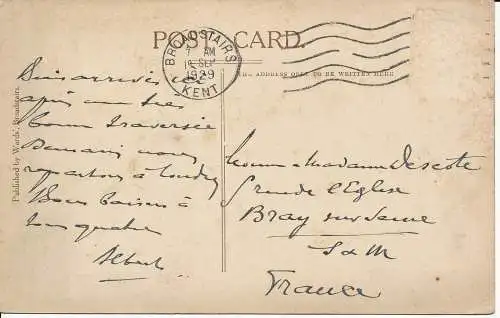 POST CARD.
THE ADDRESS ONLY TO BE WRITTEN HERE
BROADSTAIRS
7 AM
SEP
1929
KENT
Published by Wards', Broadstairs.
Suis arrivés ici
après une très
bonne traversée
Demain nous
repartons à Londres
Bons baisers à
tous quatre
Albert
Madame Descote
rue de l'Eglise
Bray sur Seine
S & M
France